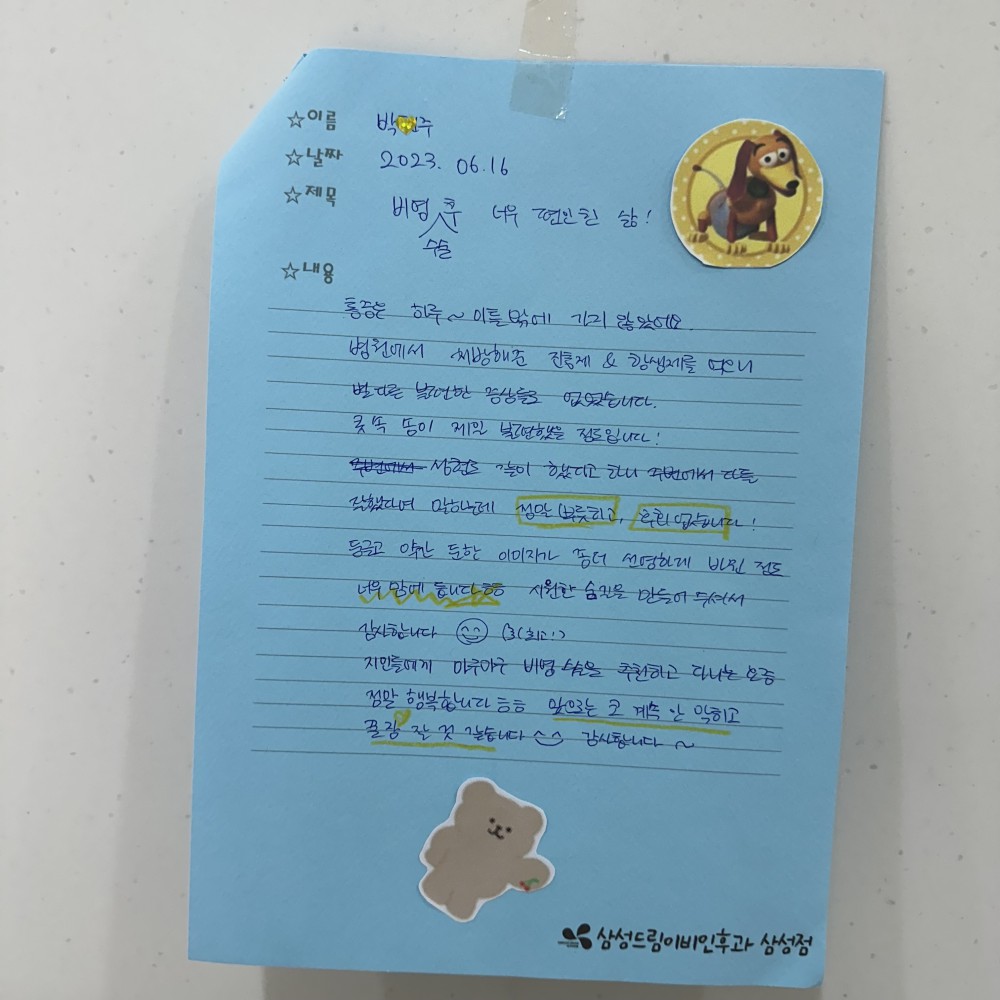 ☆이름 박 주
☆날짜 2023. 06.16
☆제목 비염 수술 후 너우 편안한 삶!
☆내용
통증은 하루~이틀밖에 가지 않았어요.
병원에서 처방해준 진통제 & 항생제를 먹으니
별다른 불편한 증상들도 없었습니다.
콧 속 솜이 제일 불편했을 정도입니다!
주변에서 성형도 같이 했다고 하니 주변에서 다들
잘했다며 말하는데 정말 뿌듯하고, 후회 없습니다!
둥글고 약간 둔한 이미지가 좀더 선명하게 바뀐 정도
너무 맘에 듭니다 ㅎㅎ 시원한 숨길을 만들어 주셔서
감사합니다 (최고!)
지인들에게 마구마구 비염 수술을 추천하고 다니는 요즘
정말 행복합니다 ㅎㅎ 앞으로는 코 계속 안 막히고
꿀잠 잘 것 같습니다 감사합니다~
삼성드림이비인후과 삼성점